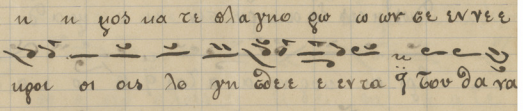 κ κ μος κα τε πλα γησ ρω ω ων σε εν νε ε
κροι οι οις λο γη σθε ε ε εν τα ᾗ του θα να